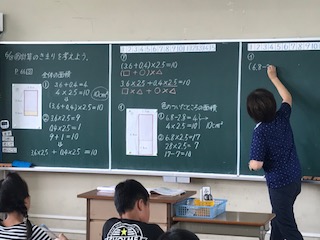 計算のきまりを考えよう。
全体の面積
① 3.6+0.4=4
4×2.5=10
10cm²
(3.6+0.4)×2.5=10
② 3.6×2.5=9
0.4×2.5=1
9+1=10
3.6×2.5+0.4×2.5=10
(3.6+0.4)×2.5=10
(□+○)×△
3.6×2.5+0.4×2.5=10
□×△+○×△
色のついたところの面積
① 6.8-2.8=4
4×2.5=10
10cm²
② 6.8×2.5=17
2.8×2.5=7
17-7=10
(6.8-